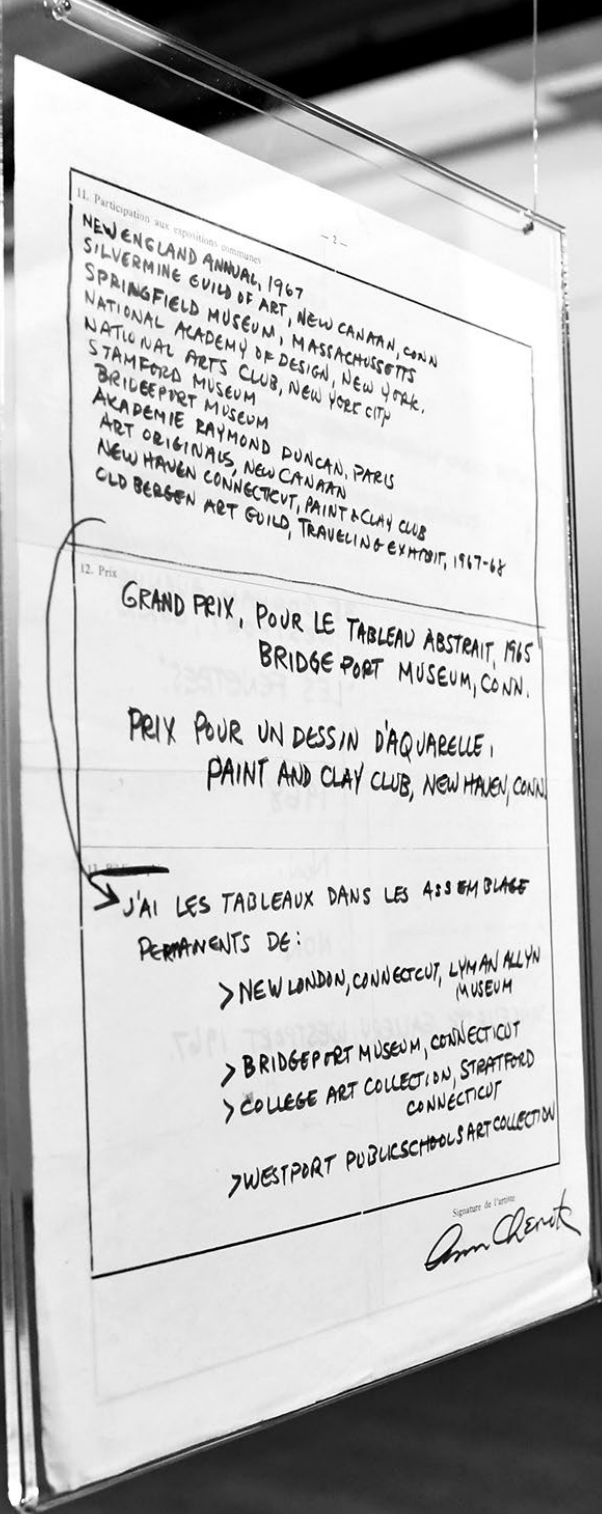 — 2 —
11. Participation aux expositions communes
NEW ENGLAND ANNUAL, 1967
SILVERMINE GUILD OF ART, NEW CANAAN, CONN
SPRINGFIELD MUSEUM, MASSACHUSSETTS
NATIONAL ACADEMY OF DESIGN, NEW YORK.
NATIONAL ARTS CLUB, NEW YORK CITY
STAMFORD MUSEUM
BRIDGEPORT MUSEUM
AKADEMIE RAYMOND DUNCAN, PARIS
ART ORIGINALS, NEW CANAAN
NEW HAVEN CONNECTICUT, PAINT & CLAY CLUB
OLD BERGEN ART GUILD, TRAVELING EXHIBIT, 1967-68
12. Prix
GRAND PRIX, POUR LE TABLEAU ABSTRAIT, 1965
BRIDGEPORT MUSEUM, CONN.
PRIX POUR UN DESSIN D'AQUARELLE,
PAINT AND CLAY CLUB, NEW HAVEN, CONN.
J'AI LES TABLEAUX DANS LES ASSEMBLAGE
PERMANENTS DE:
> NEW LONDON, CONNECTCUT, LYMAN ALLYN
MUSEUM
> BRIDGEPORT MUSEUM, CONNECTICUT
> COLLEGE ART COLLECTION, STRATFORD
CONNECTICUT
> WESTPORT PUBLIC SCHOOLS ART COLLECTION
Signature de l'artiste
Ann Chernow